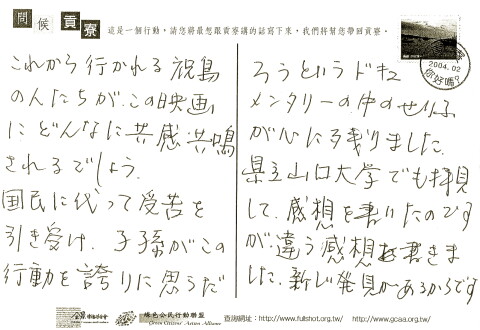 問候貢寮
這是一個行動,請您將最想跟貢寮講的話寫下來,我們將幫您帶回貢寮。
2004.02
你好嗎?
これから行かれる祝島
の人たちが、この映画
にどんなに共感共鳴
されるでしょう。
国民に代って受苦を
引き受け、子孫がこの
行動を誇りに思うだ
ろうというドキュ
メンタリーの中のせりふ
が心に残りました。
県立山口大学でも拝見
して、感想を書いたのです
が、違う感想を書きま
した。新しい発見があるからです
綠色公民行動聯盟
Green Citizens' Action Alliance
查詢網址:http://www.fullshot.org.tw/ http://www.gcaa.org.tw/